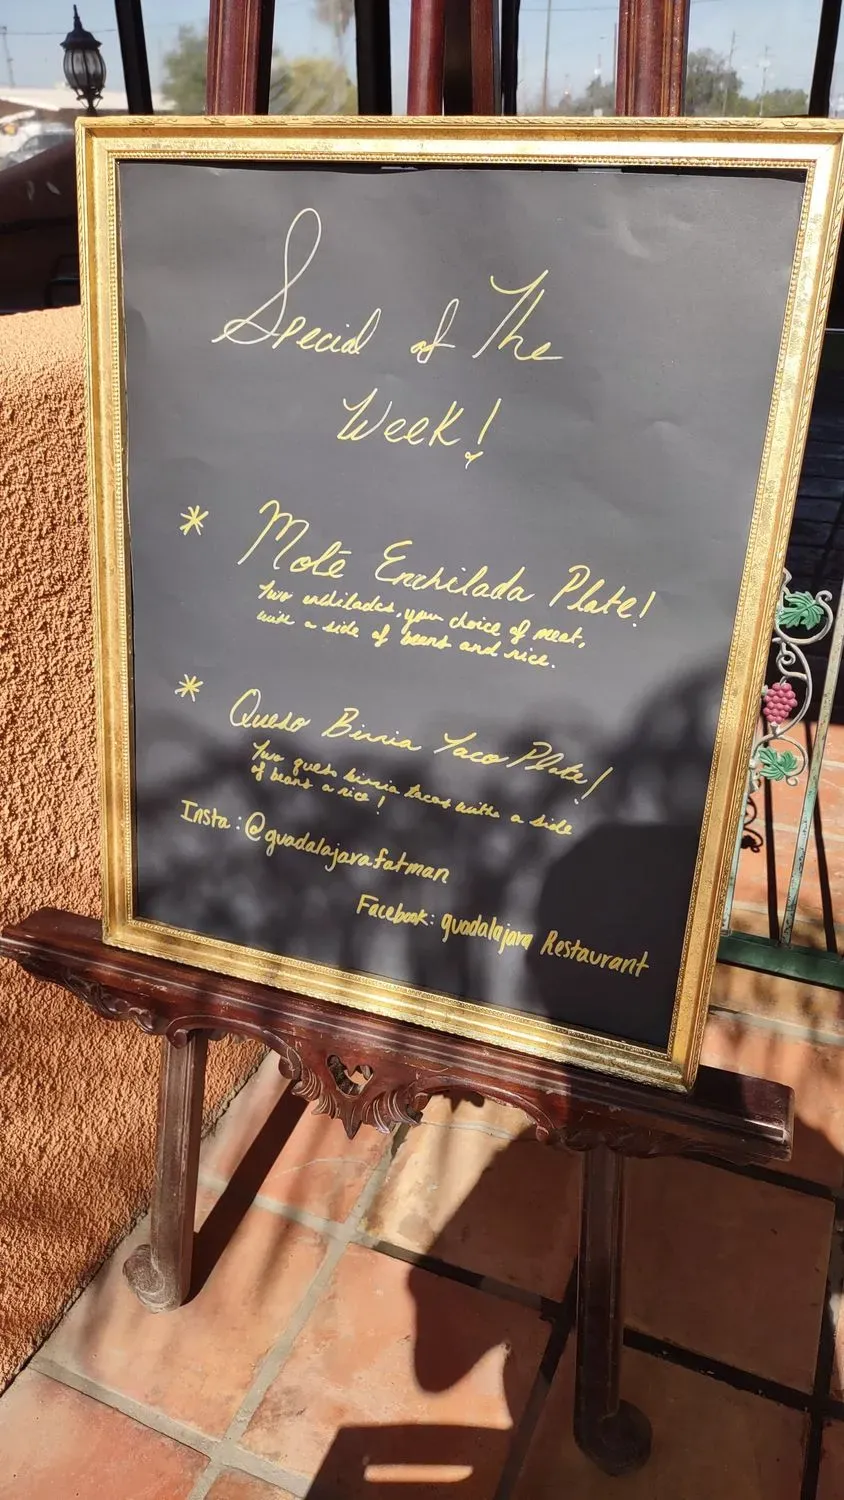 Special of The
Week!
* Molé Enchilada Plate!
Two enchilades, your choice of meat,
with a side of beans and rice.
* Queso Birria Taco Plate!
Two queso birria tacos with a side
of beans a rice!
Insta: @guadalajarafatman
Facebook: guadalajara Restaurant